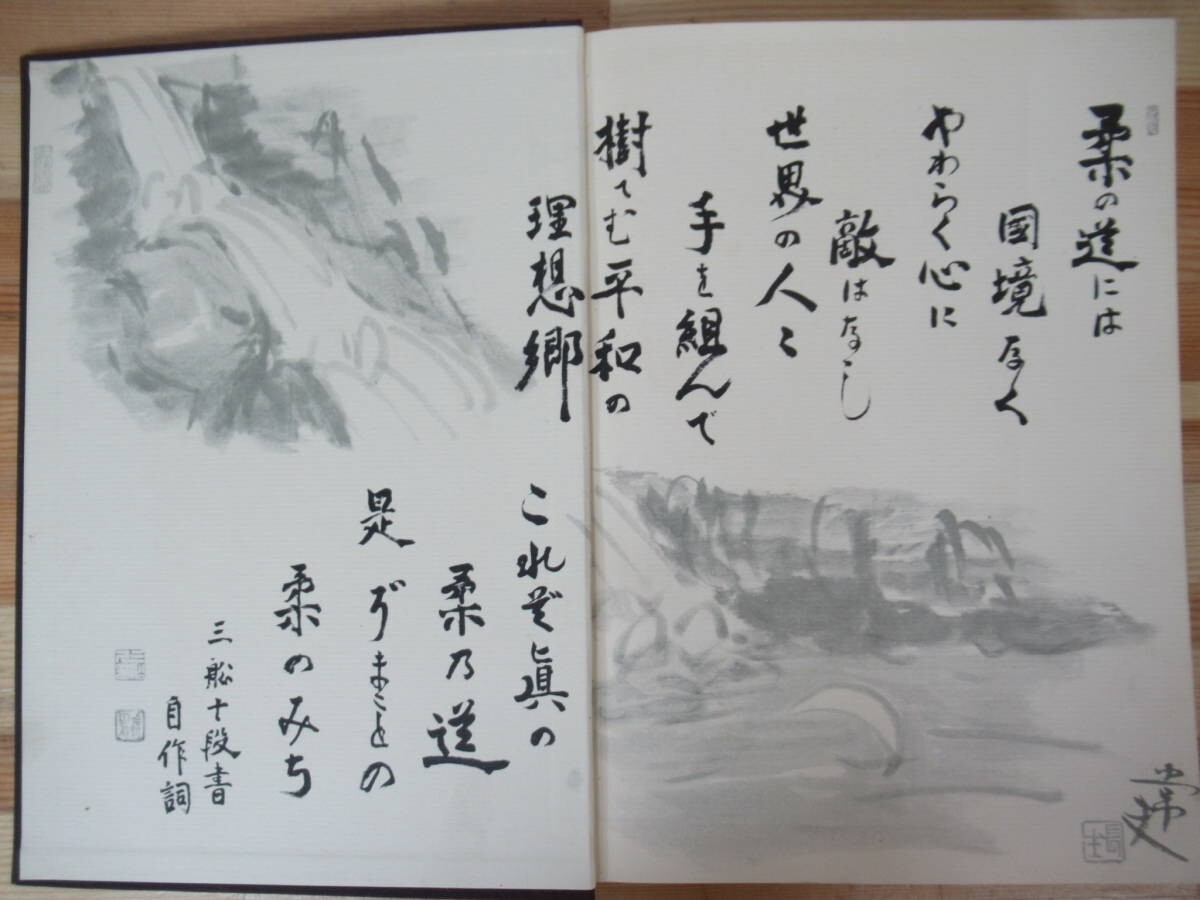 柔の道には
國境なく
やわらぐ心に
敵はなし
世界の人々
手を組んで
樹てむ平和の
理想郷
これぞ眞の
柔乃道
是ぞまことの
柔のみち
三船十段書
自作詞